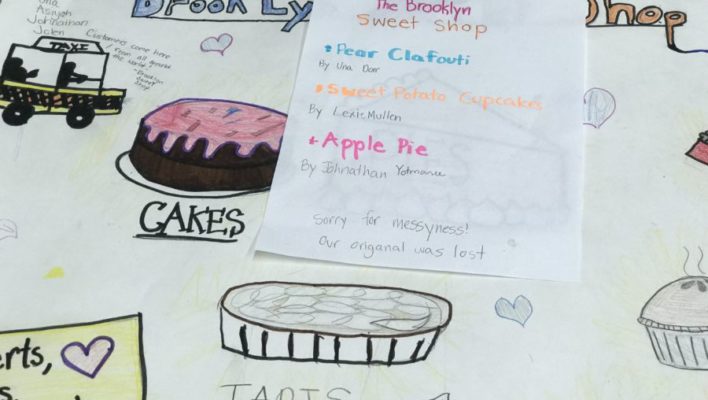 Brooklyn
Shop
Una
Johnathan
Jolen
Customers come here
from all around
the world.
TAXI
The Brooklyn
Sweet Shop
Pear Clafouti
By Una Dorr
Sweet Potato Cupcakes
By Lexie Mullen
Apple Pie
By Johnathan
Sorry for messyness!
Our origanal was lost
CAKES
erts,
TARTS